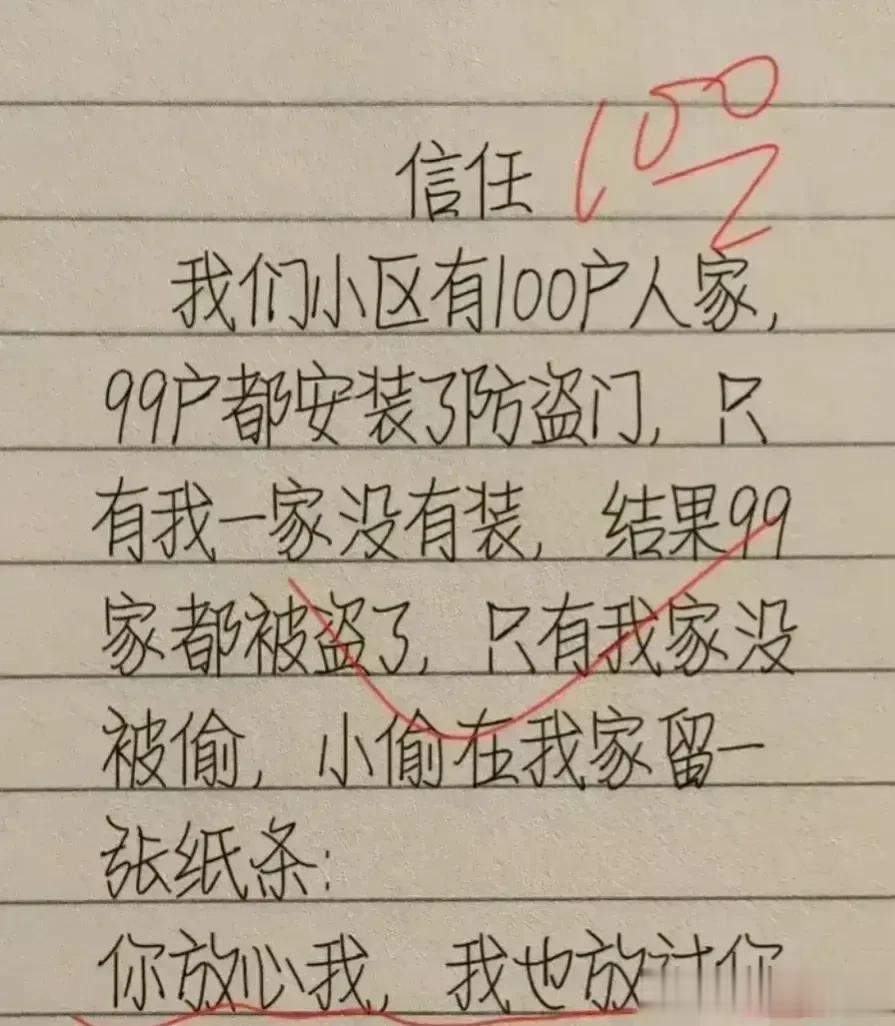 信任
100
我们小区有100户人家,
99户都安装了防盗门, 只
有我一家没有装, 结果99
家都被盗了, 只有我家没
被偷, 小偷在我家留一
张纸条:
你放心我, 我也放过你